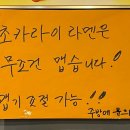 초카라이 라멘은
무조건 맵습니다!
맵기 조절 가능!!
주방에 문의